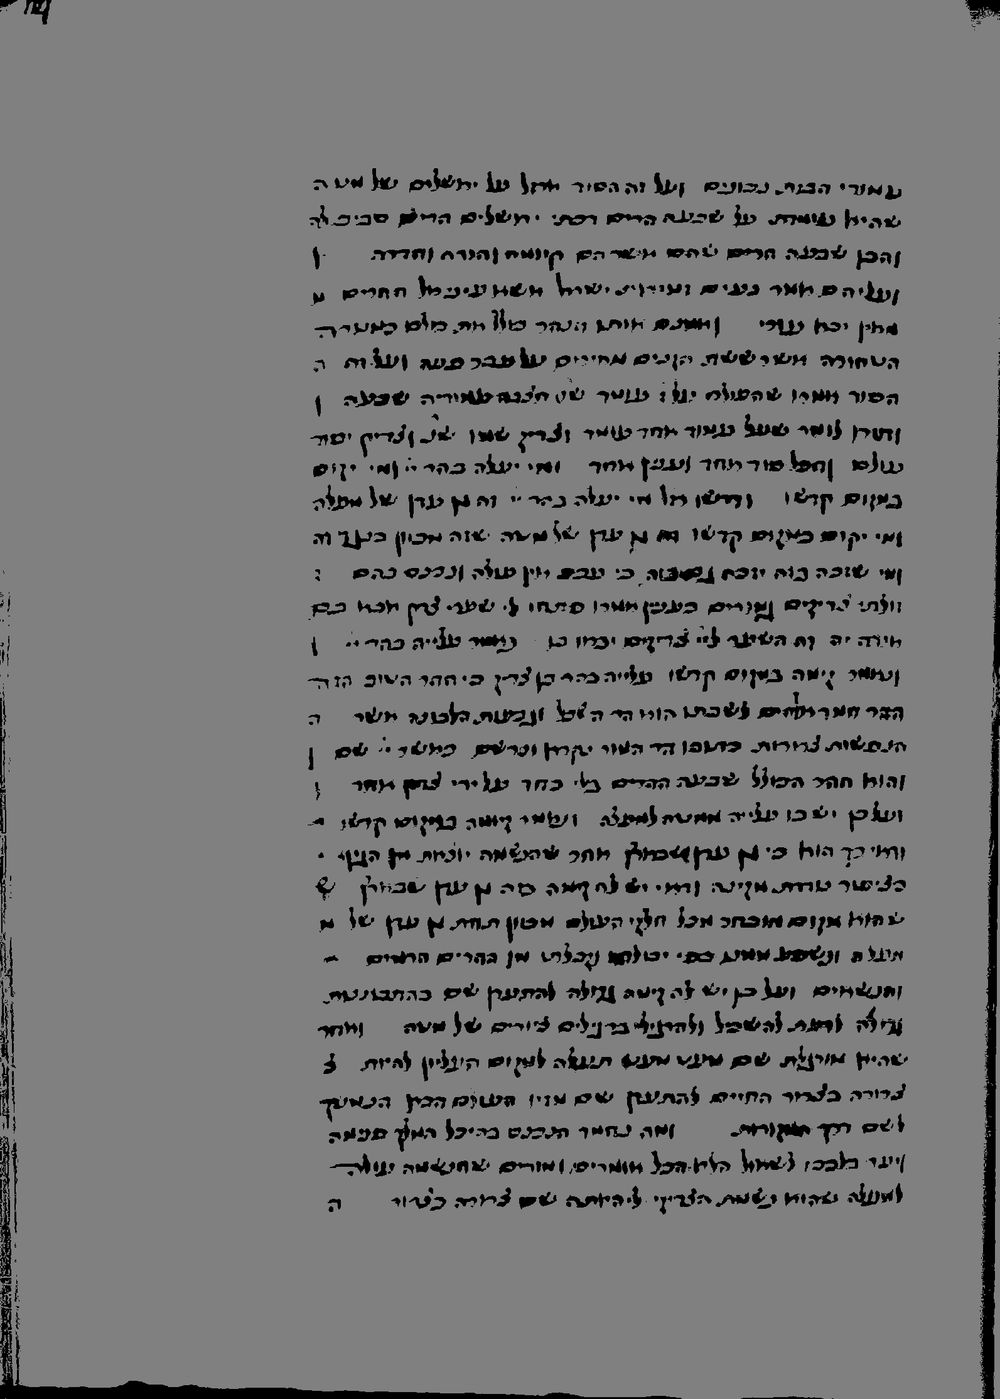 עמודי הבנת נכונים ועל זה הסוד אמרו על ירושלים של מטה
שהיא עומדת על שבעה הרים דכתי ירושלים הרים סביב לה
והבן שבעה הרים שהם אשר הם קוממו והודו וחדדה ו
ועליהם אמר נעים זמירות ישראל אשא עיני אל ההרים מ
מאין יבא עזרי ואמנם אותו הנהר כולל את כולם כמנורה
הטהורה אשר ששת הקנים מאירים על עבר פניה ועל זה ה
הסוד אמרו שהעולם עומד על שבעה ו
ודרשו לומר שעל עמוד אחד עומד וצדיק שמו שנ וצדיק יסוד
עולם והכל סוד אחד וענין אחד ומי יעלה בהר יי ומי יקום
במקום קדשו ודרשו רזל מי יעלה בהר יי זה גן עדן של מעלה
ומי יקום במקום קדשו זה גן עדן של מטה שזה מכוון כנגד זה
ומי שזוכה בזה זוכה בזה כי בעת אין עולה ונכנס בהם
זולתי צדיקים גמורים כענין אמרו פתחו לי שערי צדק אבא בם
אודה יה זה השער ליי צדיקים יבאו בו ונאמר עלייה בהר יי ו
ונאמר קימה במקום קדשו עלייה בהר כן צדק כי ההר הטוב הזה
ההר חמד אלהים לשבתו הוא הר השכל וגבעות הלבונה אשר ה
הנפשות צרורות בכנפו הר המור יקרא ונרשם כאשר יי שם ו
והוא ההר הכולל שבעה ההרים בלי כחד על ידי צדק אחד ו
ועל כן יש בו עלייה ממטה למעלה ונאמר קימה במקום קדשו
ודאי כך הוא כי גן עדן שבארץ אחר שהנשמה יוצאת מן הגוף
בציור טרדת מקינה ודאי יש לה קימה בזה גן עדן שבארץ ש
שהוא מקום מובחר מכל חלקי העולם מכוון תחת גן עדן של מ
מעלה ונשפע ממנו כפי יכולתו וקבלתו מן ההרים הרמים
והנשאים ועל כן יש לה קימה גדולה להתעדן שם בהתבוננות
גדולה לדעת להשכיל ולהרגיל ברגילים ציורים של מטה ואחר
שהיא מורגלת שם מעט מעט תתעלה למקום העליון להיות צ
צרורה בצרור החיים להתעדן שם מזיו העולם הבא הנמשך
לשם דרך המקורות ומה נחמד הנכנס בהיכל המלך פנימה
ויער בלבבו לשאול הלא הכל אומרים ומורים שהנשמה עולה
למעלה שהוא נשמת הצדיקי להיותה שם צרורה בצרור ה